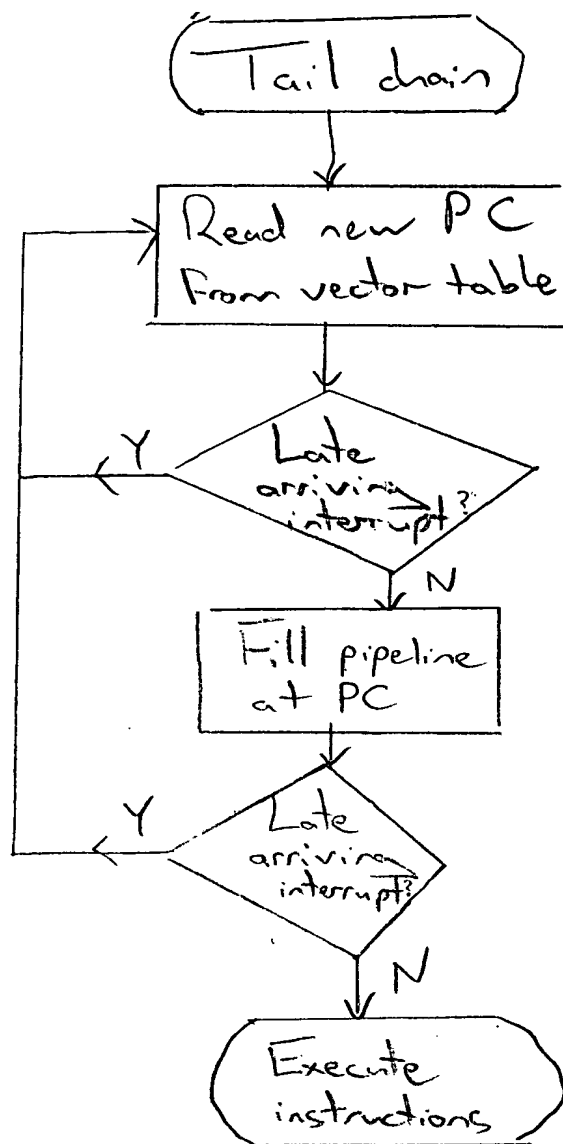 Tail chain
Read new PC
From vector table
Late
arriving
interrupt?
Y
N
Fill pipeline
at PC
Late
arriving
interrupt?
Y
N
Execute
instructions